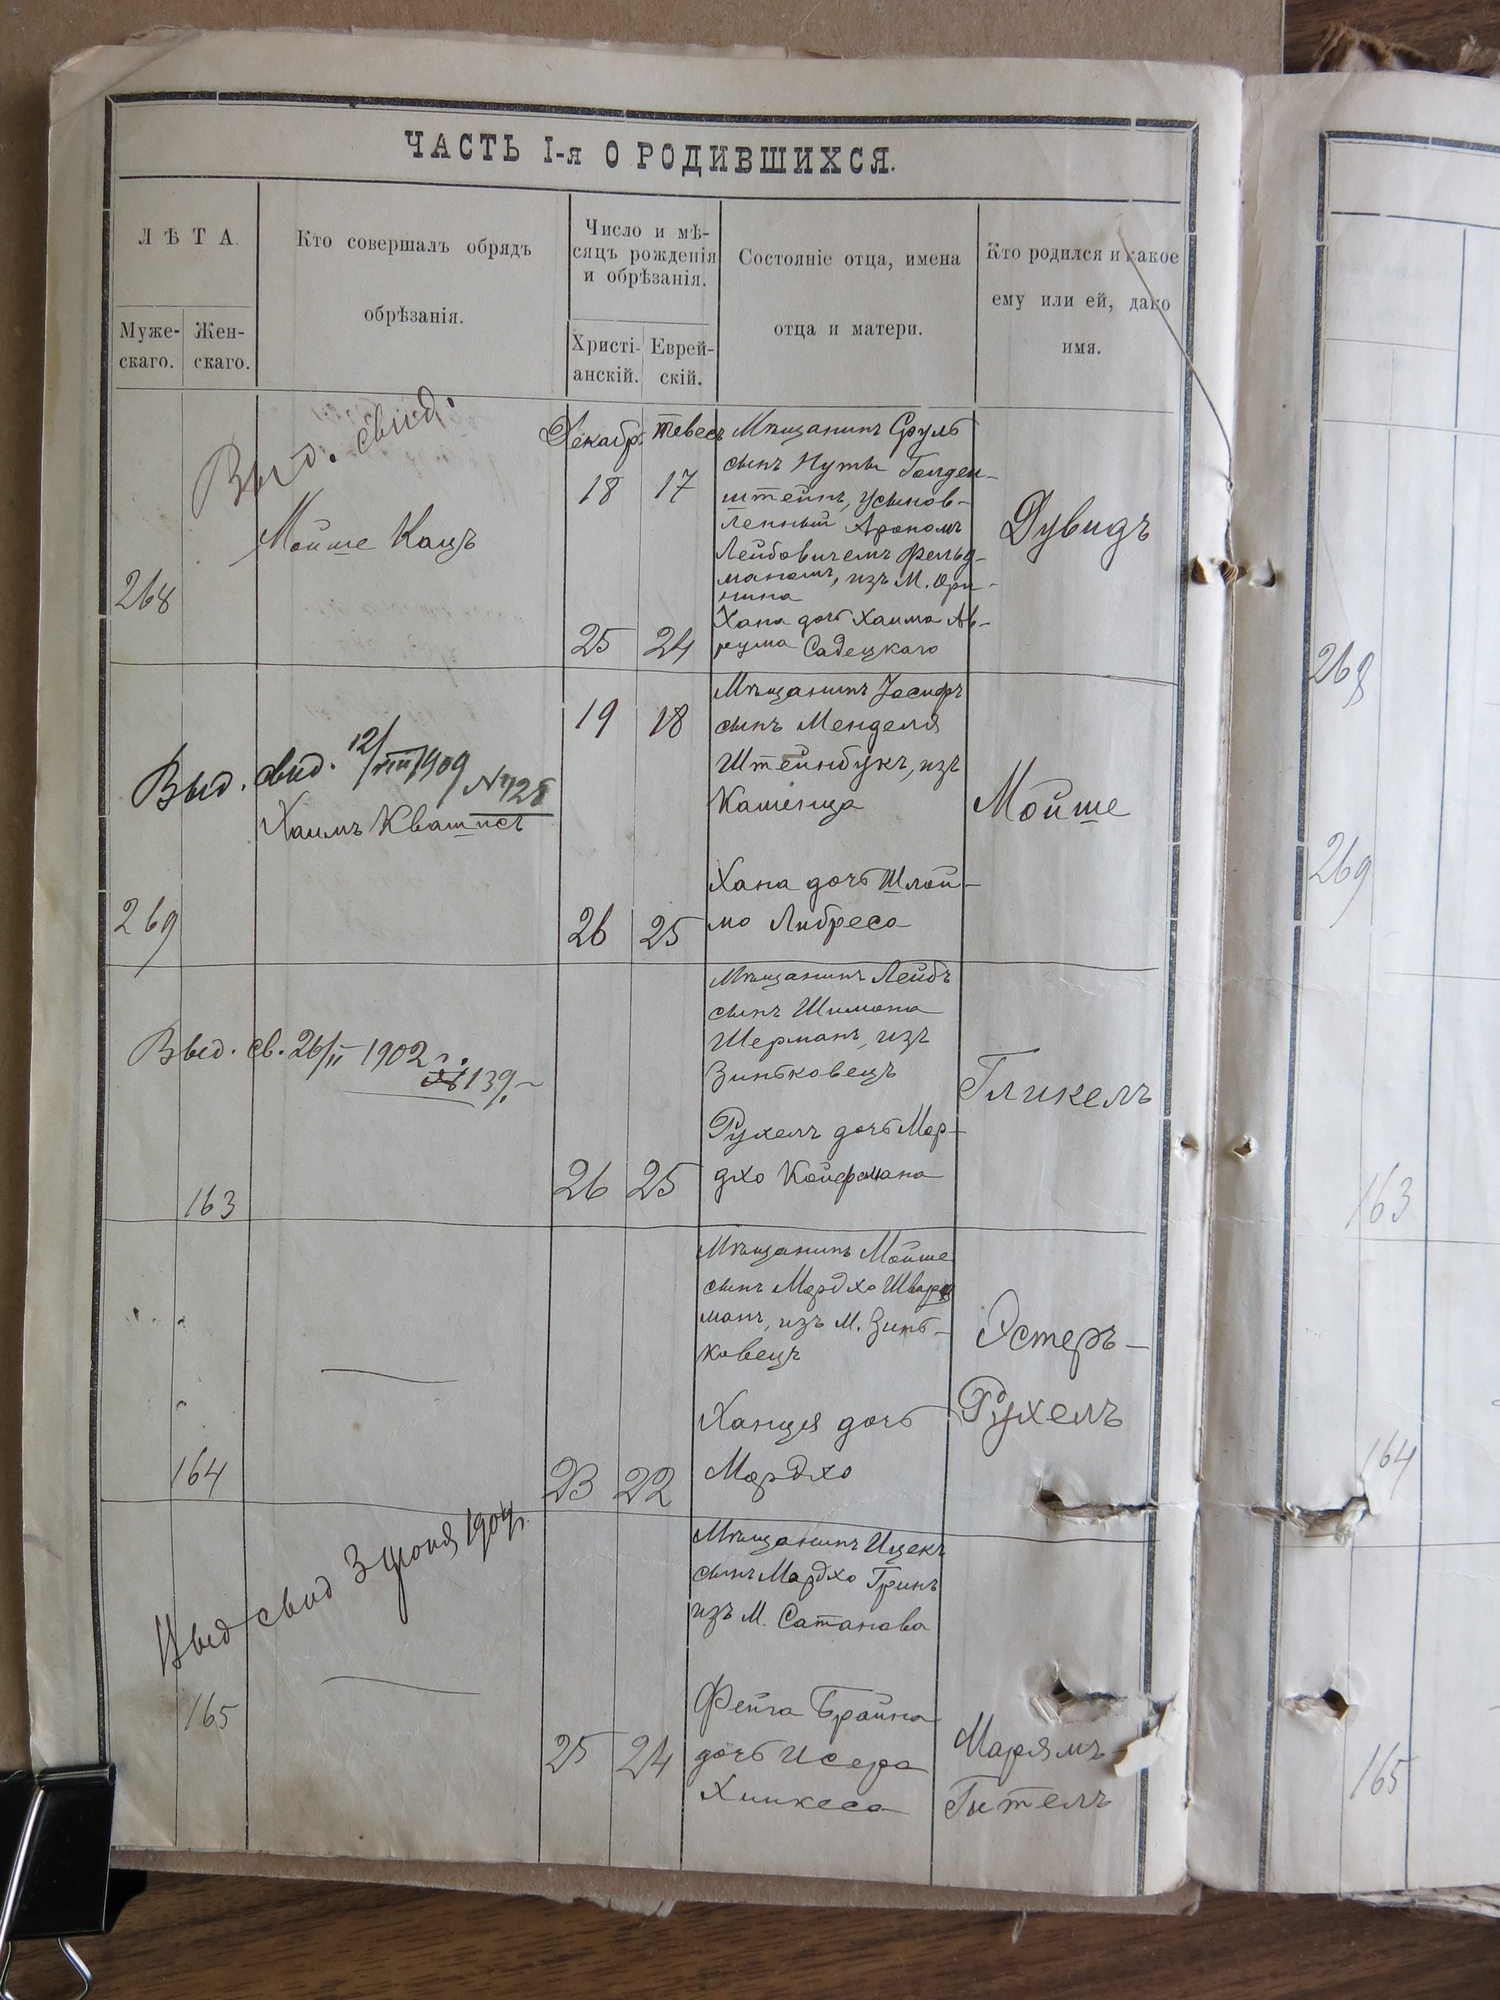 ЧАСТЬ I-я О РОДИВШИХСЯ.
ЛѢТА.
Муже-
скаго.
Жен-
скаго.
Кто совершалъ обрядъ
обрѣзанія.
Число и мѣ-
сяцъ рожденія
и обрѣзанія.
Христі-
анскій.
Еврей-
скій.
Состояніе отца, имена
отца и матери.
Кто родился и какое
ему или ей, дано
имя.
Выд. свид.
Мойше Кацъ
268
Декабр.
18
25
Тевесъ
17
24
Мѣщанинъ Сруль
сынъ Нуты Голден-
штейнъ, усынов-
ленный Арономъ
Лейбовичемъ Фельд-
маномъ, изъ М.
Хана дочь Хаима Ав-
рума Садецкаго
Дувидъ
Выд. свид. 12/VIII 1909
№ 428
Хаимъ Квашисъ
269
19
26
18
25
Мѣщанинъ Іосифъ
сынъ Менделя
Штейнбукъ, изъ
Каменца
Хана дочь Шлой-
мо Либреса
Мойше
Выд. св. 26/II 1902 г.
№ 139.
163
26
25
Мѣщанинъ Лейбъ
сынъ Шимона
Шерманъ, изъ
Зиньковецъ
Рухель дочь Мор-
дхо Койфмана
Гликель
164
23
22
Мѣщанинъ Мойше
сынъ Мордхо Шварц
манъ, изъ М. Зинь-
ковецъ
Ханця дочь
Мордхо
Эстеръ-
Рухель
Выд свид 3 Іюня 1904 г.
165
25
24
Мѣщанинъ Ицекъ
сынъ Мордхо Гринъ
изъ М. Сатанова
Фейга Брайна
дочь Исера
Хинкеса
Марямъ-
Гитель
268
269
163
164
165